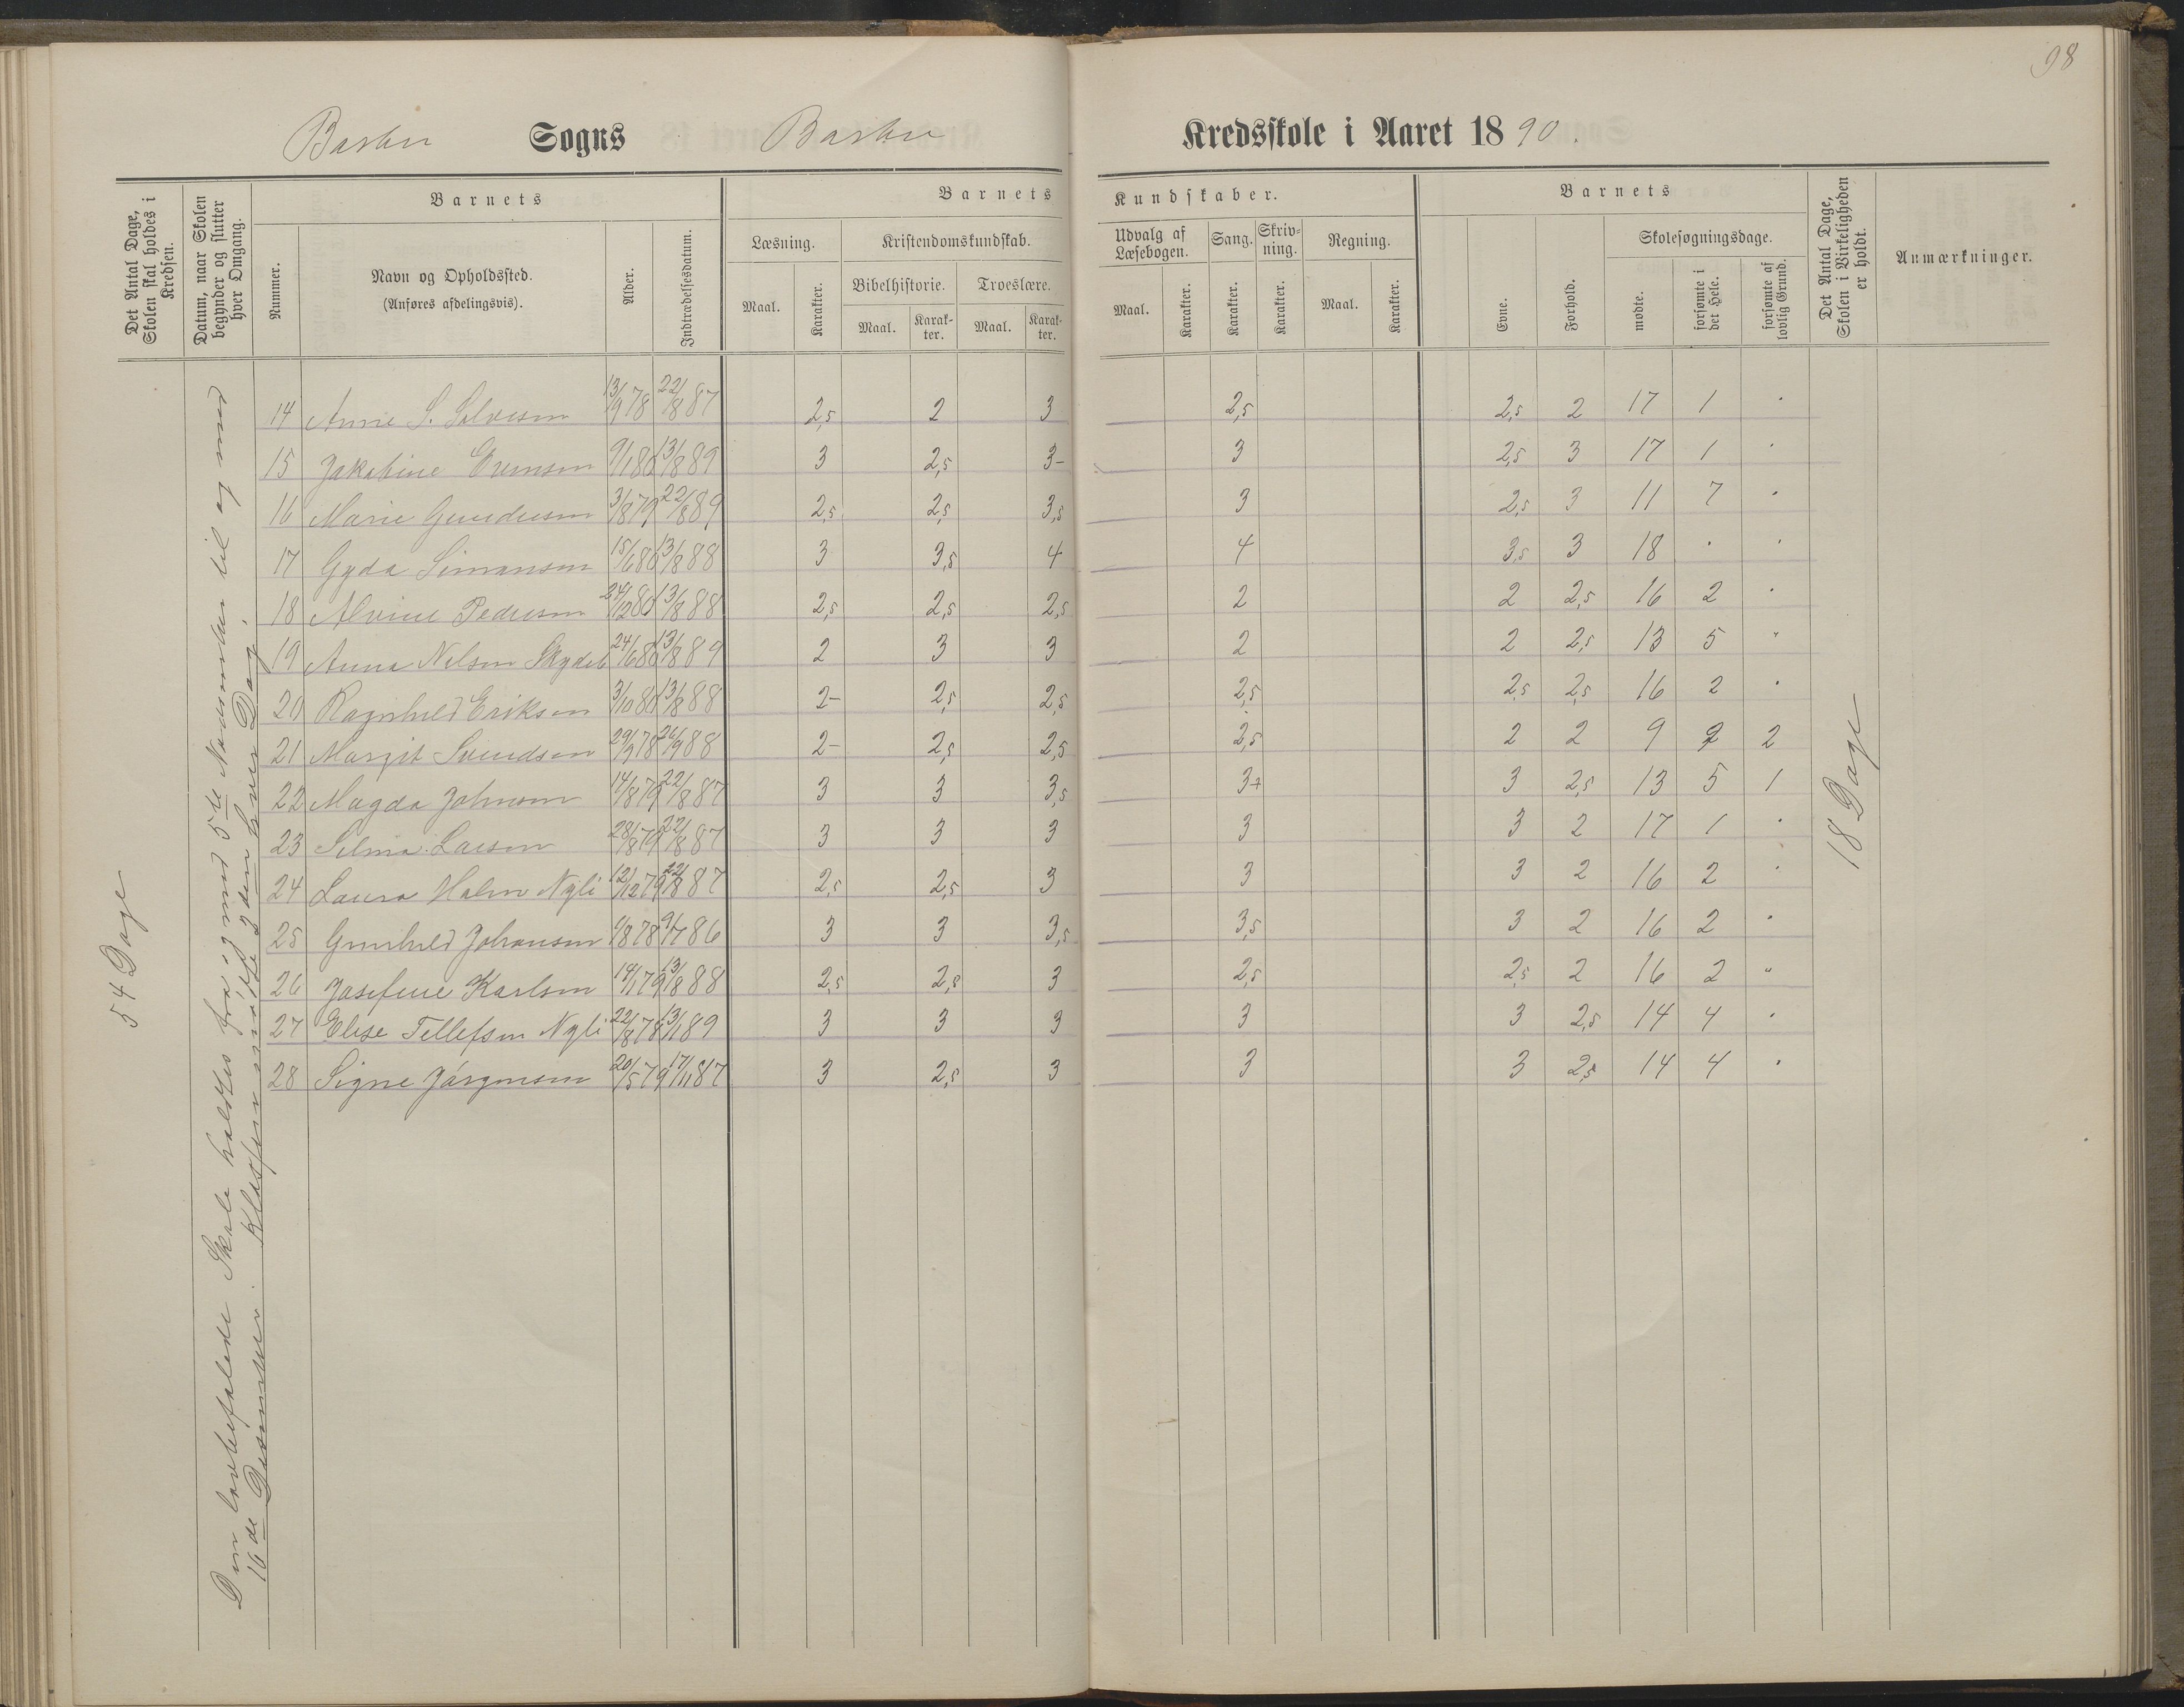 98
Barbu Sogns Barbu Kredsskole i Aaret 1890.
Det Antal Dage, Skolen skal holdes i Kredsen.
Datum, naar Skolen begynder og slutter hver Omgang.
Barnets
Nummer.
Navn og Opholdssted.
(Anføres afdelingsvis).
Alder.
Indtrædelsesdatum.
Barnets Kundskaber.
Læsning.
Maal.
Karakter.
Kristendomskundskab.
Bibelhistorie.
Maal.
Karakter.
Troeslære.
Maal.
Karakter.
Udvalg af Læsebogen.
Maal.
Karakter.
Sang.
Karakter.
Skrivning.
Karakter.
Regning.
Maal.
Karakter.
Barnets
Evne.
Forhold.
Skolesøgningsdage.
mødte.
forsømte i det Hele.
forsømte af lovlig Grund.
Det Antal Dage, Skolen i Virkeligheden er holdt.
Anmærkninger.
54 Dage
Den lovbefalede Skole holdtes fra og med 5te November til og med
16de December. Klassen mødte 2den hver Dag.
14 Anne S. Salvesen 13/9 78 22/8 87 2,5 2 3 2,5 2,5 2 17 1 .
15 Jakobine Evensen 9/1 80 13/8 89 3 2,5 3- 3 2,5 3 17 1 .
16 Marie Gundersen 3/8 79 22/8 89 2,5 2,5 3,5 3 2,5 3 11 7 .
17 Gyda Simonsen 15/6 80 13/8 88 3 3,5 4 4 3,5 3 18 . .
18 Alvine Pedersen 24/12 80 13/8 88 2,5 2,5 2,5 2 2 2,5 16 2 .
19 Anna Nilsen Skydeb 24/6 80 13/8 89 2 3 3 2 2 2,5 13 5 "
20 Ragnhild Eriksen 3/10 80 13/8 88 2- 2,5 2,5 2,5 2,5 2,5 16 2 .
21 Margit Svendsen 29/9 78 26/9 88 2- 2,5 2,5 2,5 2 2 9 9 2
22 Magda Johnsen 14/8 79 22/8 87 3 3 3,5 3+ 3 2,5 13 5 1
23 Selma Larsen 28/8 79 22/8 87 3 3 3 3 3 2 17 1 .
24 Laura Holm Nyli 12/12 79 22/8 87 2,5 2,5 3 3 3 2 16 2 .
25 Gunhild Johansen 6/8 78 9/7 86 3 3 3,5 3,5 3 2 16 2 .
26 Josefine Karlsen 14/1 79 13/8 88 2,5 2,5 3 2,5 2,5 2 16 2 "
27 Elise Tellefsen Nyli 22/8 78 13/1 89 3 3 3 3 3 2,5 14 4 .
28 Signe Jörgensen 20/5 79 17/11 87 3 2,5 3 3 3 2,5 14 4 .
18 Dage